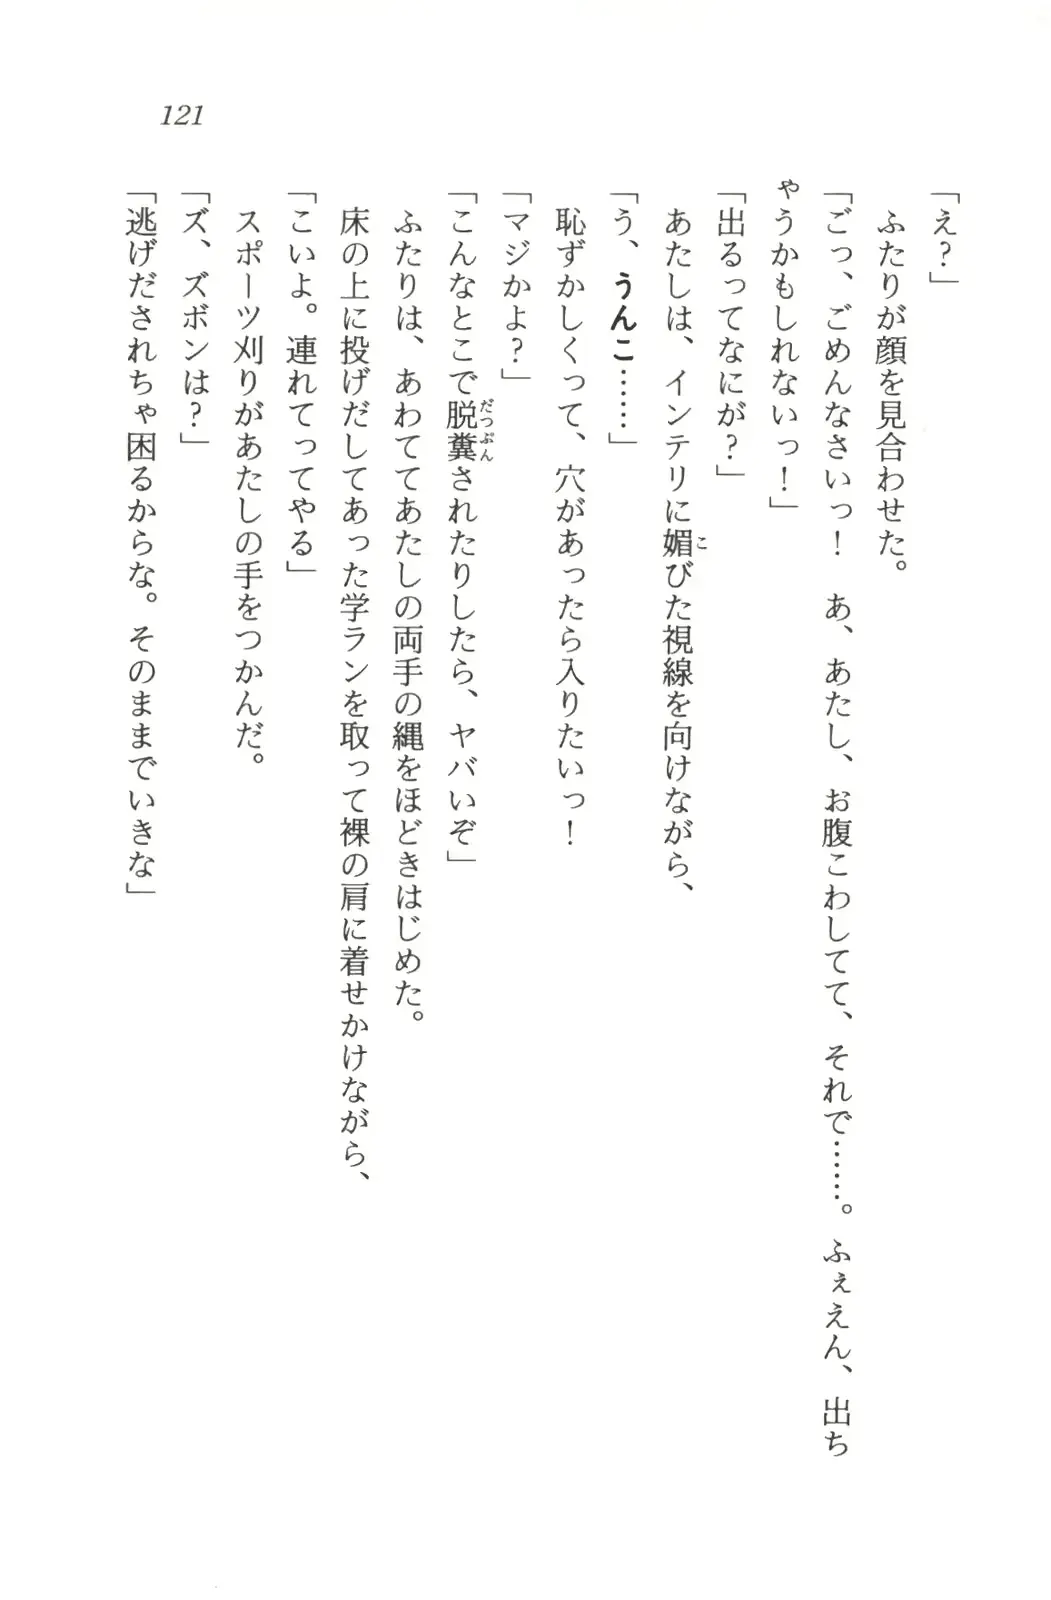 121
「え？」
ふたりが顔を見合わせた。
「ごっ、ごめんなさいっ！　あ、あたし、お腹こわしてて、それで……。ふぇえん、出ち
ゃうかもしれないっ！」
「出るってなにが？」
あたしは、インテリに媚びた視線を向けながら、
「う、うんこ……」
恥ずかしくって、穴があったら入りたいっ！
「マジかよ？」
「こんなとこで脱糞されたりしたら、ヤバいぞ」
ふたりは、あわててあたしの両手の縄をほどきはじめた。
床の上に投げだしてあった学ランを取って裸の肩に着せかけながら、
「こいよ。連れてってやる」
スポーツ刈りがあたしの手をつかんだ。
「ズ、ズボンは？」
「逃げだされちゃ困るからな。そのままでいきな」